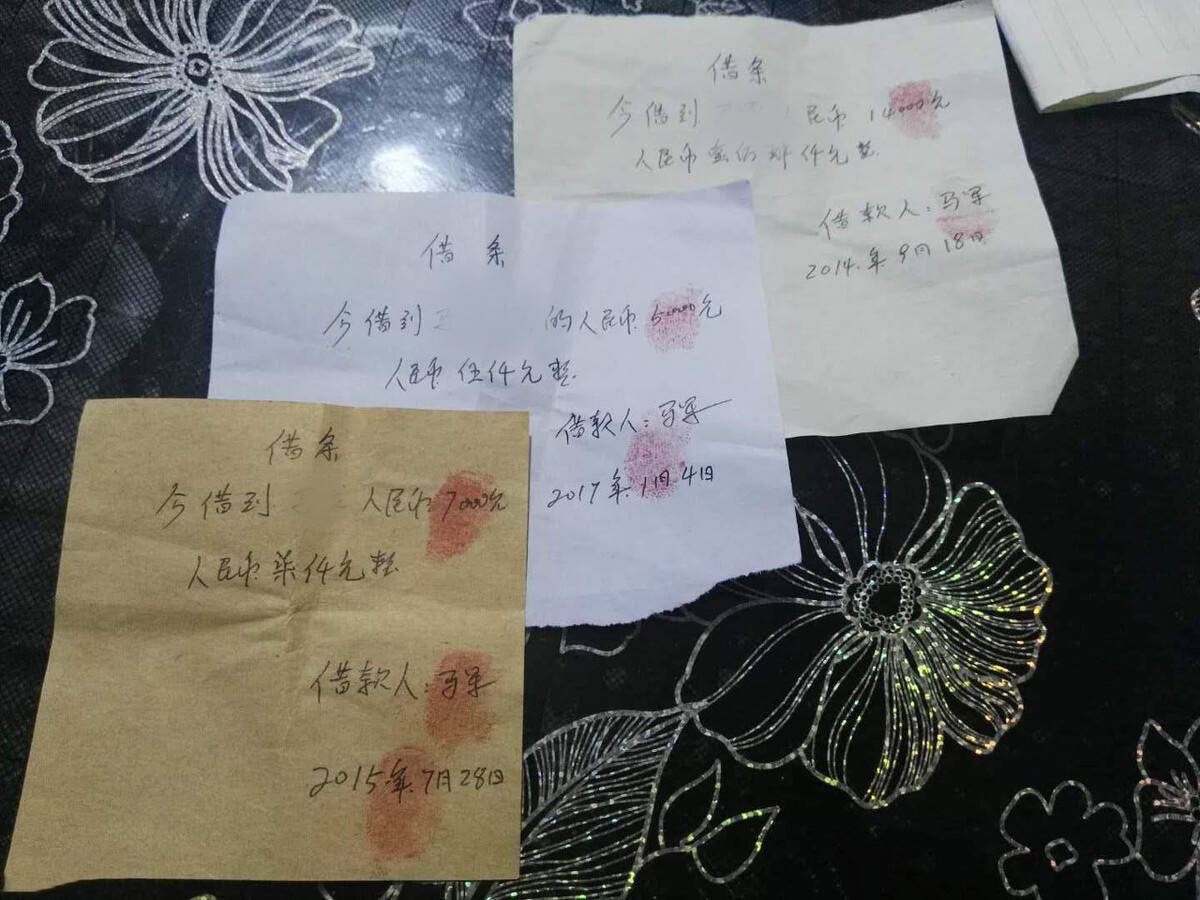 借条
今借到 民币 14000元
人民币 仟元整
借款人：马军
2014年9月18日
借条
今借到 的人民币 5000元
人民币伍仟元整
借款人：马军
2017年1月4日
借条
今借到 人民币7000元
人民币柒仟元整
借款人：马军
2015年7月28日